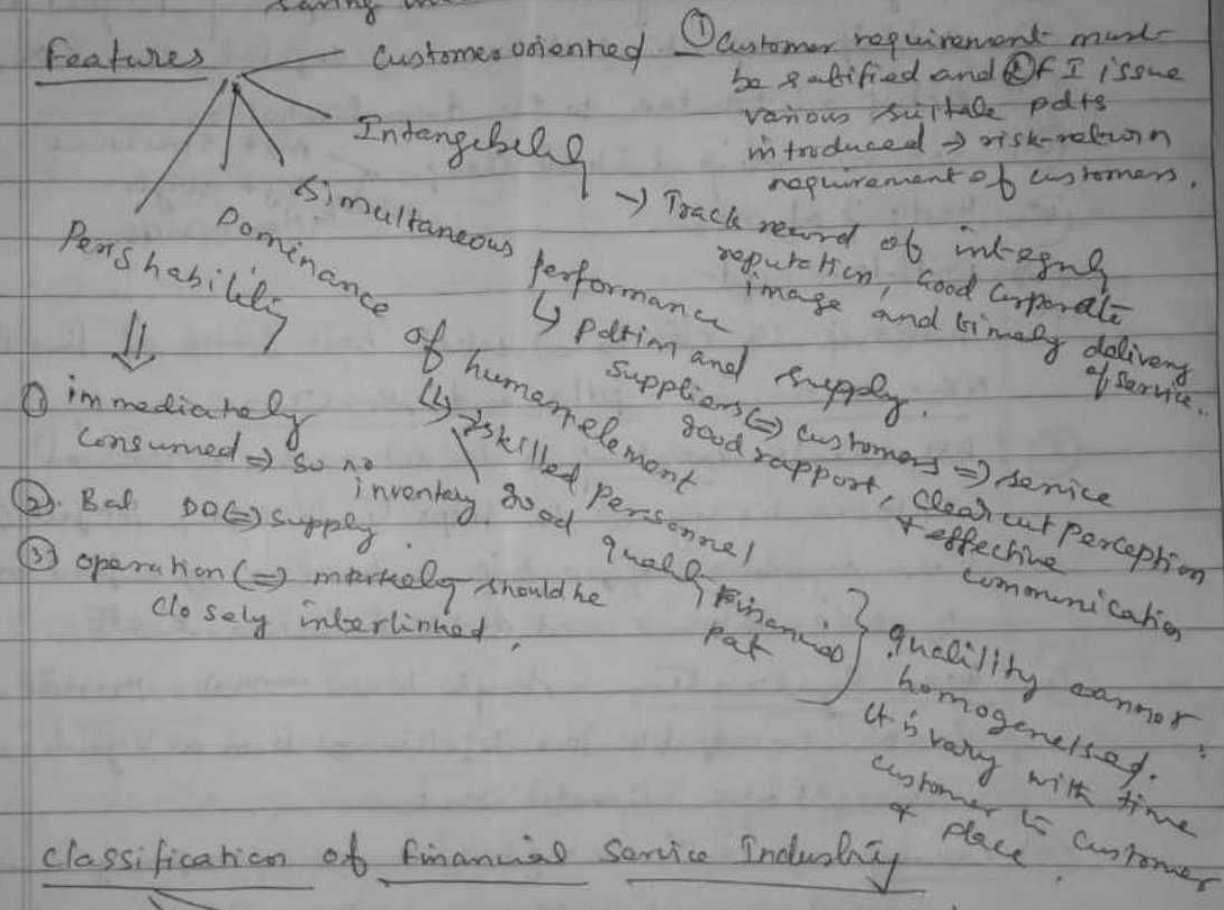 saving
Features
Customer oriented
① Customer requirement must
be satified and ② F I issue
various suitale pdts
introduced → risk-return
requirement of customers.
Intangebility
→ Track record of integrity
reputation, Good Corporate
image and timely delivery
of service..
Simultaneous performance
↳ pdtion and supply.
suppliers (=) customers =) service
good rapport, clear cut perception
+ effective
communication
Dominance of human element
↳ → skilled personnel
good quality Financial
pdt
quality cannot
homogeneised.
It is vary with time
customer to customer
+ place.
Perishability
⇓
① immediately
consumed =) so no
inventory
②. Bal DD (=) supply.
③ operation (=) markely should be
closely interlinked.
Classification of Financial Service Industry